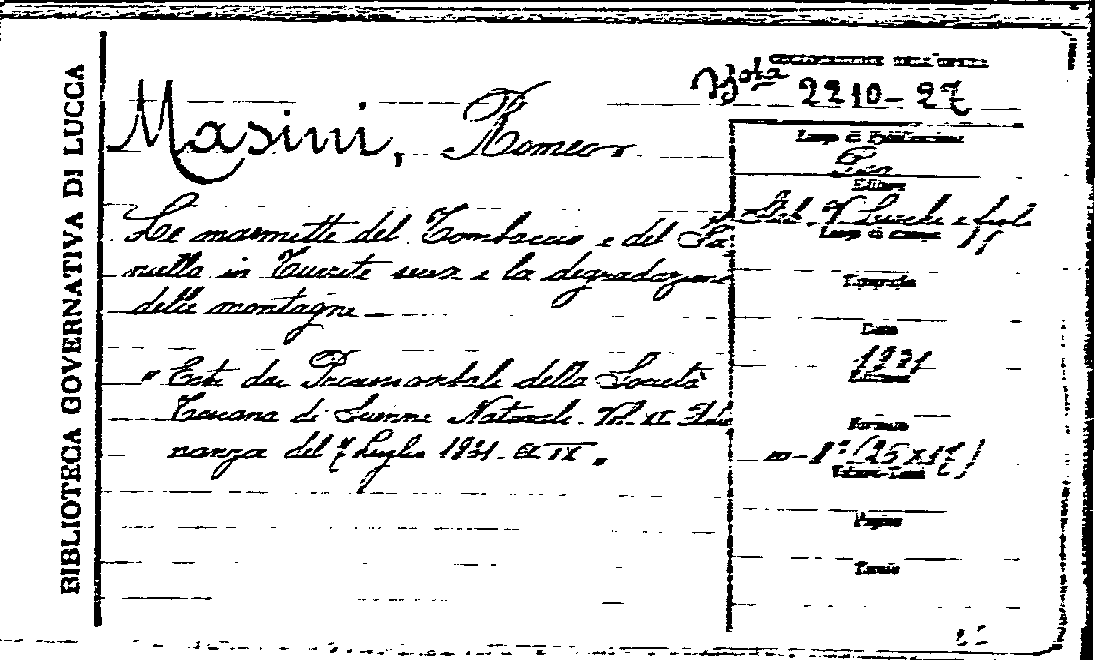 BIBLIOTECA GOVERNATIVA DI LUCCA
Bta 2210-27
Masini, Romeo
Luogo di Pubblicazione
Pisa
Editore
Le marmitte del Tombaccio e del Fa-
nello in Turrite secca e la degradazione
delle montagne
Luogo di stampa
Tipografia
Data
1931
Edizione
" Estr. dai Processi verbali della Società
Toscana di Scienze Naturali. Vol. XL Adu
nanza del 7 Luglio 1931. IX "
Formato
in-8° (25x17)
Volume
Pagine
Tavole